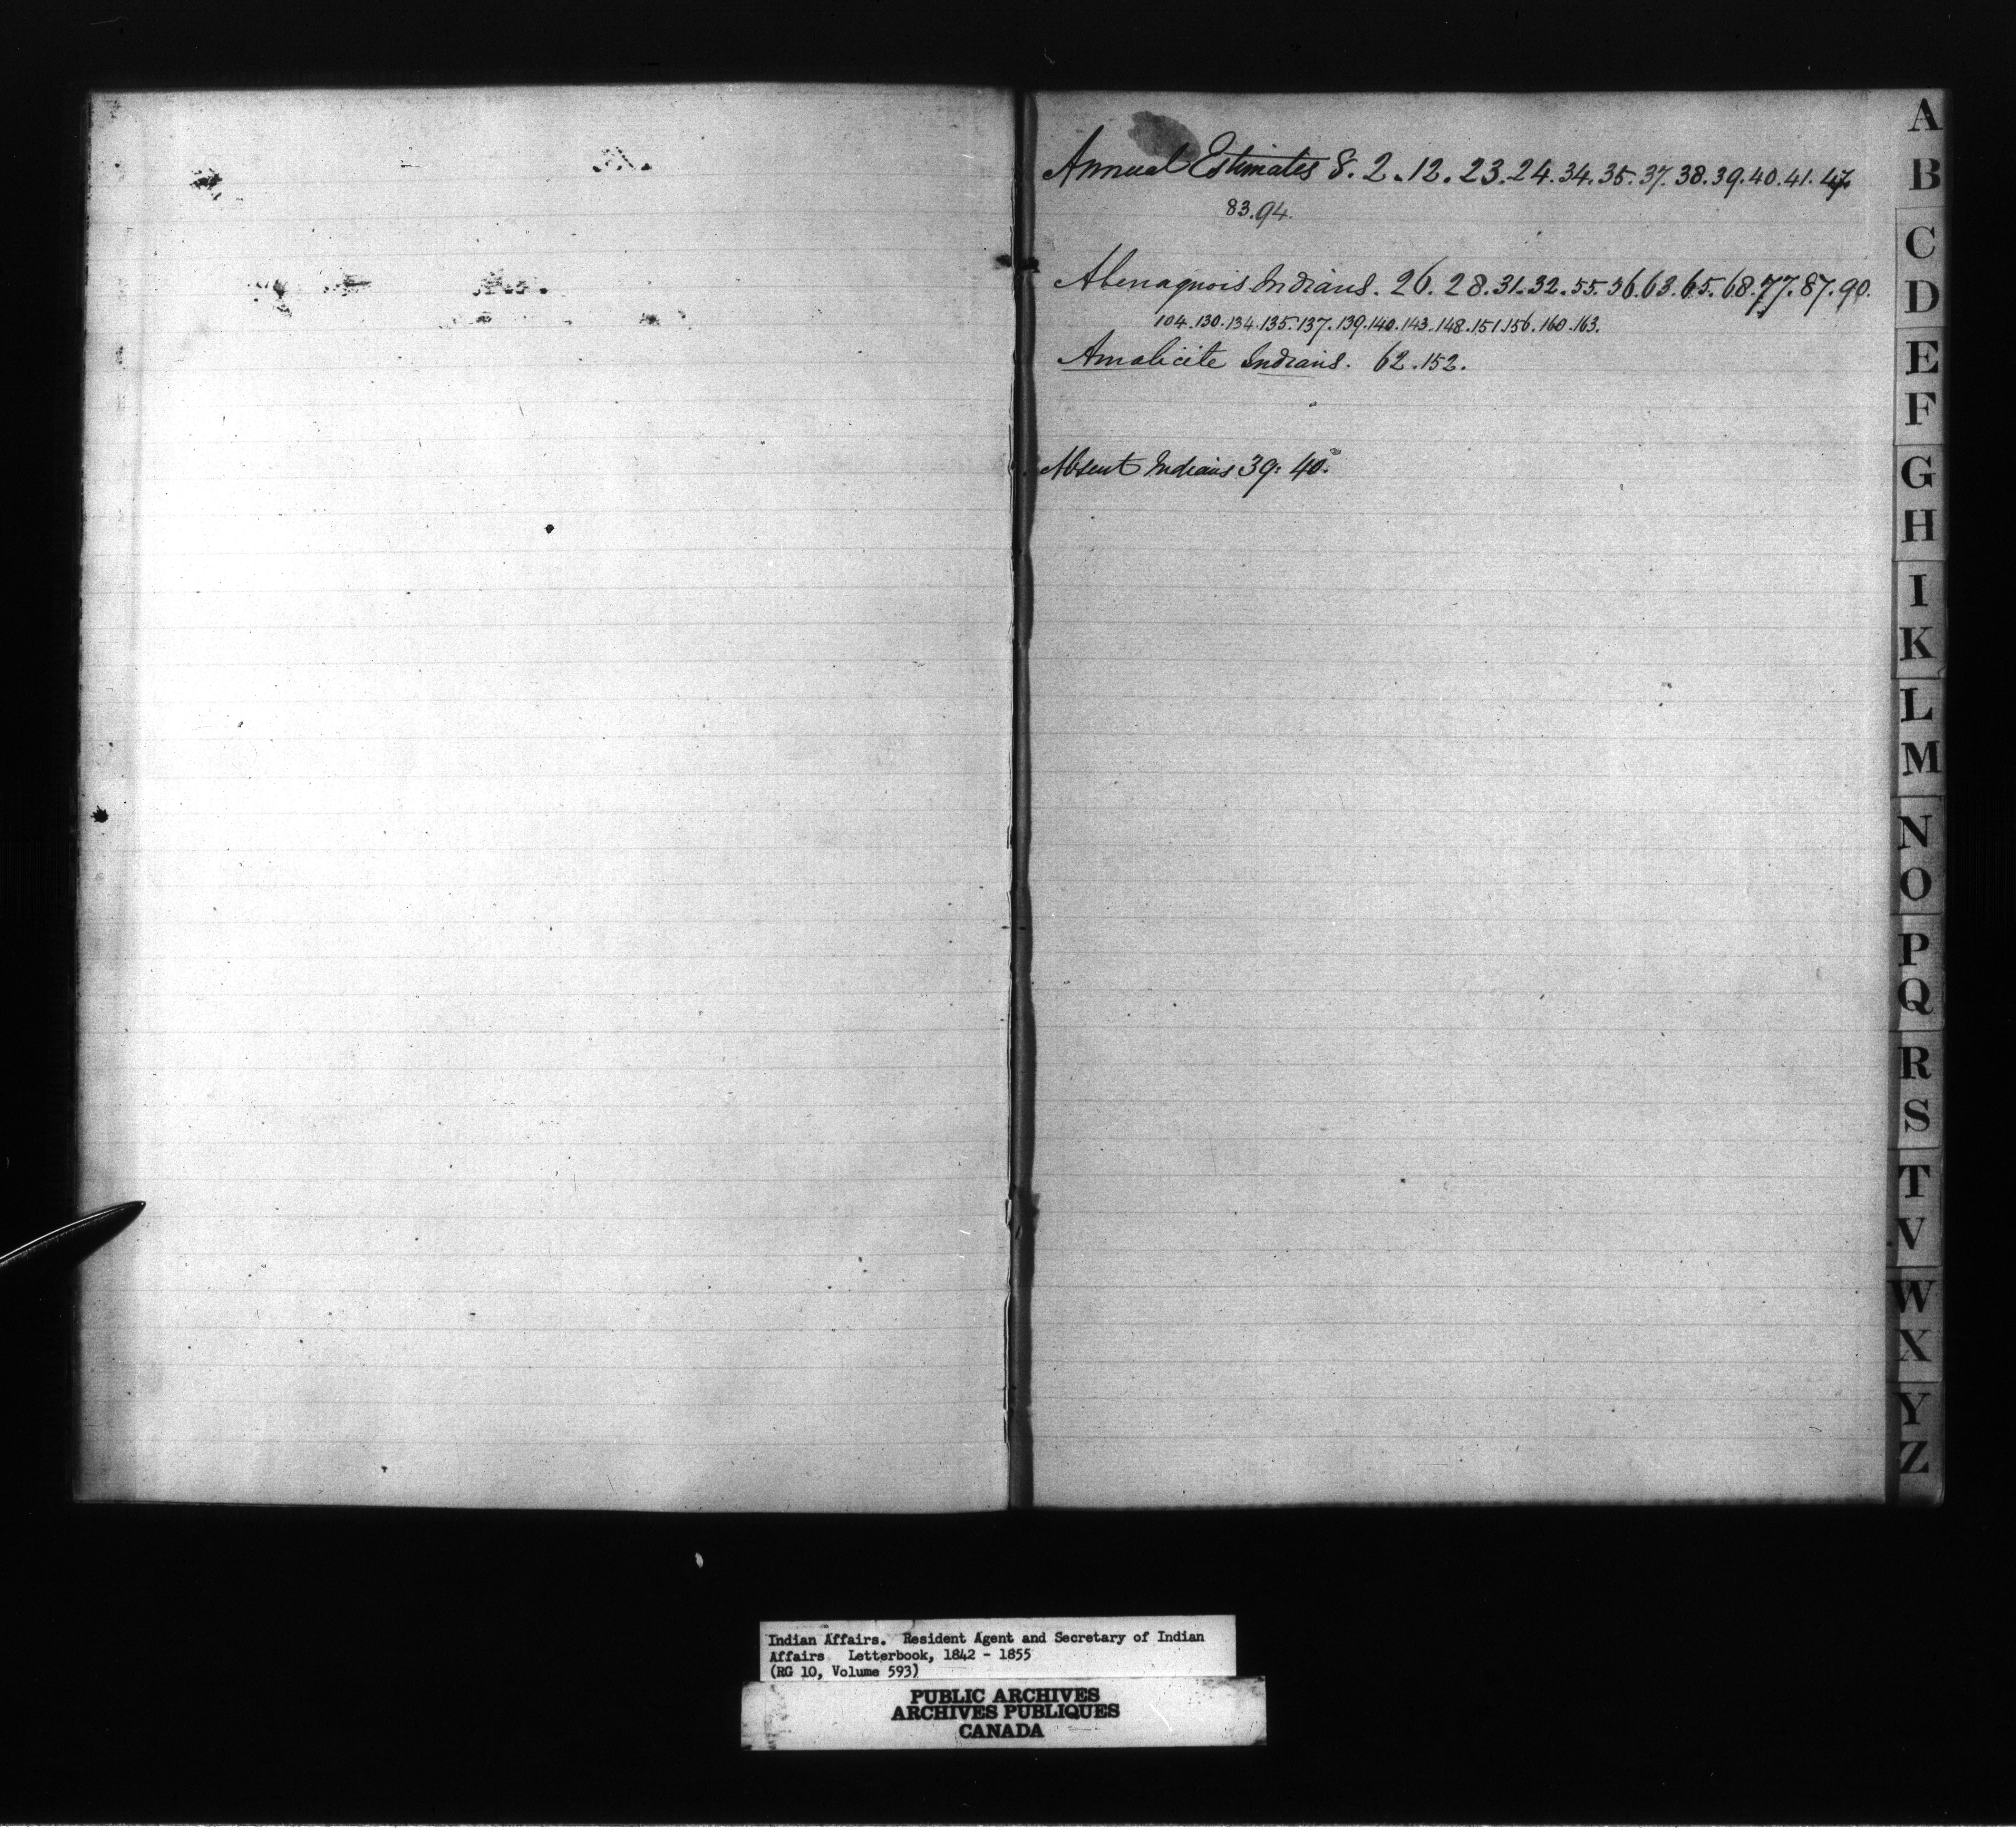 Annual Estimates 8. 2. 12. 23. 24. 34. 35. 37. 38. 39. 40. 41. 47.
83. 94.
Abenaquois Indians. 26. 28. 31. 32. 55. 56. 63. 65. 68. 77. 87. 90.
104. 130. 134. 135. 137. 139. 140. 143. 148. 151. 156. 160. 163.
Amalicite Indians. 62. 152.
Absent Indians 39: 40.
A
B
C
D
E
F
G
H
I
K
L
M
N
O
P
Q
R
S
T
V
W
X
Y
Z
Indian Affairs. Resident Agent and Secretary of Indian
Affairs Letterbook, 1842 - 1855
(RG 10, Volume 593)
PUBLIC ARCHIVES
ARCHIVES PUBLIQUES
CANADA